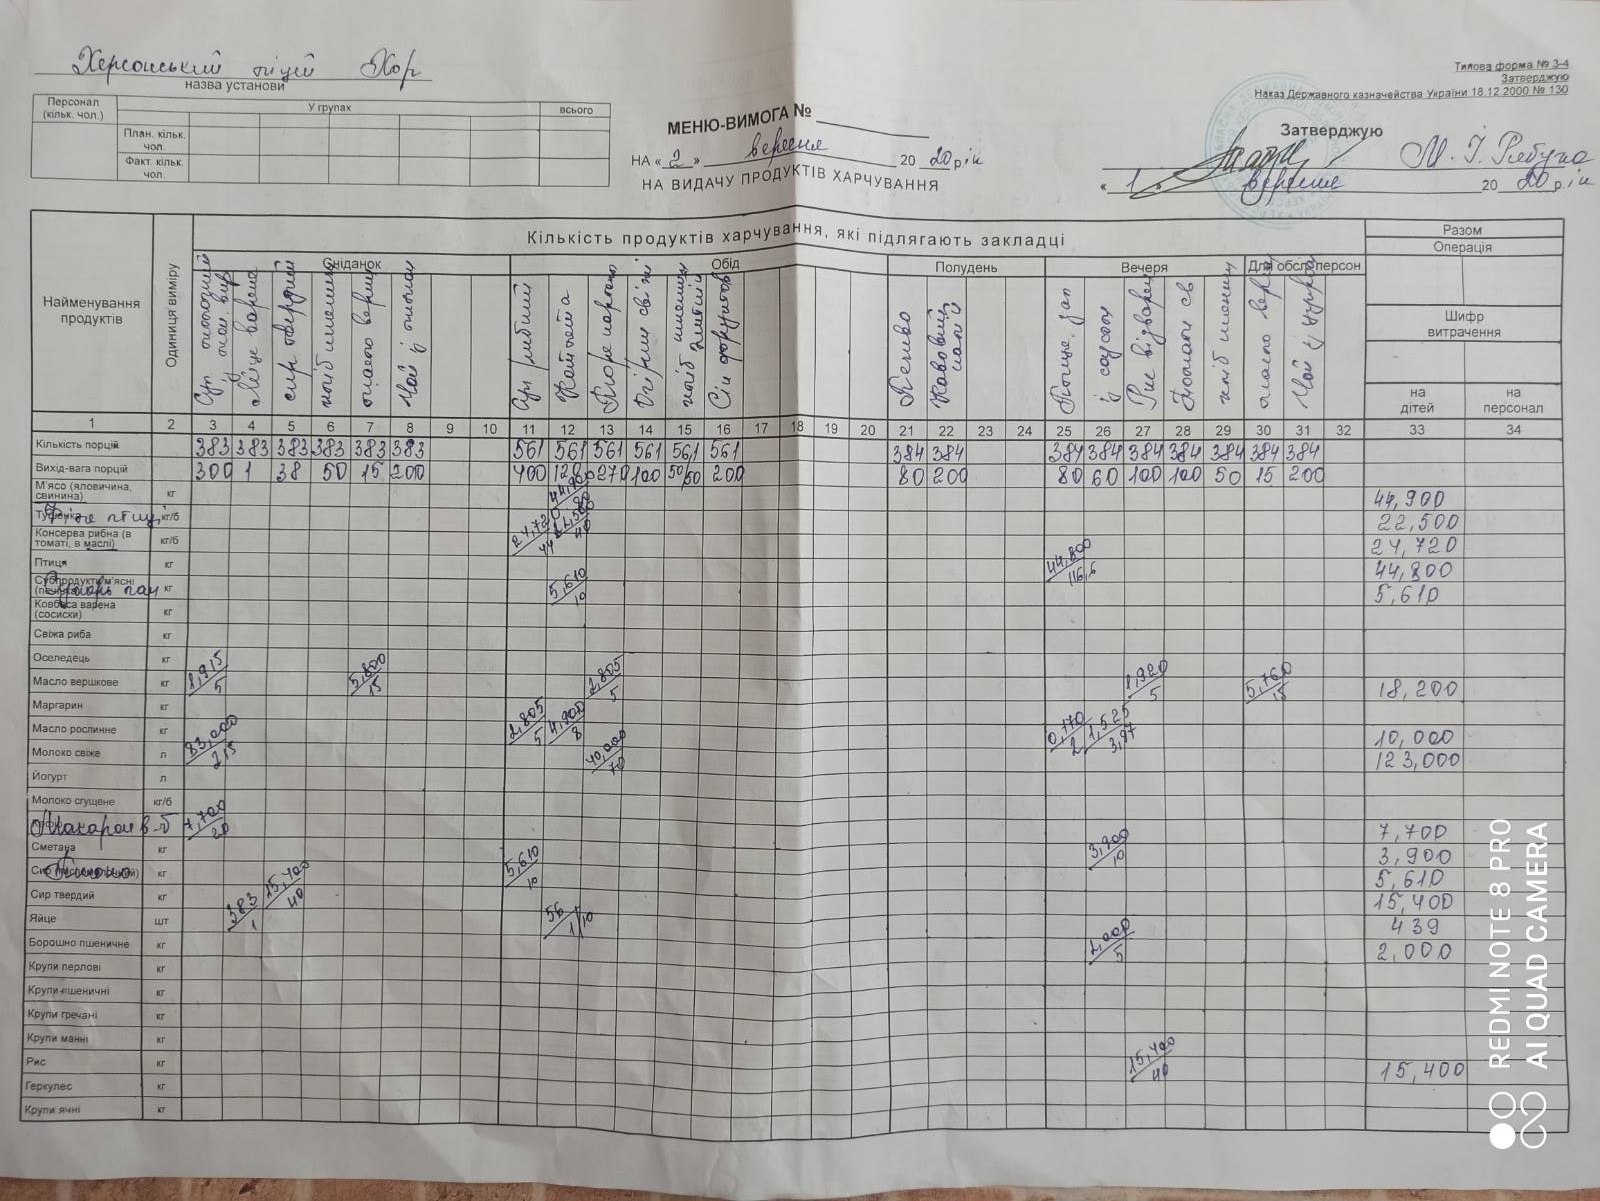 Херсонський ліцей ХОР
назва установи
Типова форма № З-4
Затверджую
Наказ Державного казначейства України 18.12.2000 № 130
Персонал (кільк. чол.) У групах всього
План. кільк. чол.
Факт. кільк. чол.
МЕНЮ-ВИМОГА №
НА « 2 » вересня 20 20 рік
НА ВИДАЧУ ПРОДУКТІВ ХАРЧУВАННЯ
Затверджую
« 1 » вересня 20 20 р.
Найменування продуктів
Одиниця виміру
Кількість продуктів харчування, які підлягають закладці
Разом
Операція
Шифр витрачення
на дітей
на персонал
Сніданок Обід Полудень Вечеря Для обслг. персон
Яйце варене
сир твердий
масло верш
Чай
Суп рибний
Котлета
Пюре картоп
Огірки свіжі
Сік фруктов
Печиво
Кавовий напій
Рис відварен
Помат св
масло верш
Чай з цукром
1 2 3 4 5 6 7 8 9 10 11 12 13 14 15 16 17 18 19 20 21 22 23 24 25 26 27 28 29 30 31 32 33 34
Кількість порцій 383 383 383 383 383 383 561 561 561 561 561 561 384 384 384 384 384 384 384 384 384
Вихід-вага порцій 300 1 38 50 15 200 400 120 270 100 50/50 200 80 200 80 60 100 100 50 15 200
М'ясо (яловичина, свинина) кг 44,900 80 44,900
Філе птиці кг/б 22,500 40 22,500
Консерва рибна (в томаті, в маслі) кг/б 24,720 44 24,720
Птиця кг 44,800 116,6 44,800
Сухарь пан кг 5,610 10 5,610
Ковбаса варена (сосиски) кг
Свіжа риба кг
Оселедець кг
Масло вершкове кг 1,915 5 5,800 15 2,805 5 1,920 5 5,760 15 18,200
Маргарин кг
Масло рослинне кг 2,805 5 4,900 8 0,770 2 1,525 3,97 10,000
Молоко свіже л 83,000 215 40,000 70 123,000
Йогурт л
Молоко сгущене кг/б
Макарон в-б 7,700 20 7,700
Сметана кг 3,900 10 3,900
Пшоно кг 5,610 10 5,610
Сир твердий кг 15,400 40 15,400
Яйце шт 383 1 56 1/10 439
Борошно пшеничне кг 2,000 5 2,000
Крупи перлові кг
Крупи пшеничні кг
Крупи гречані кг
Крупи манні кг
Рис кг 15,400 40 15,400
Геркулес кг
Крупи ячні кг
REDMI NOTE 8 PRO
AI QUAD CAMERA